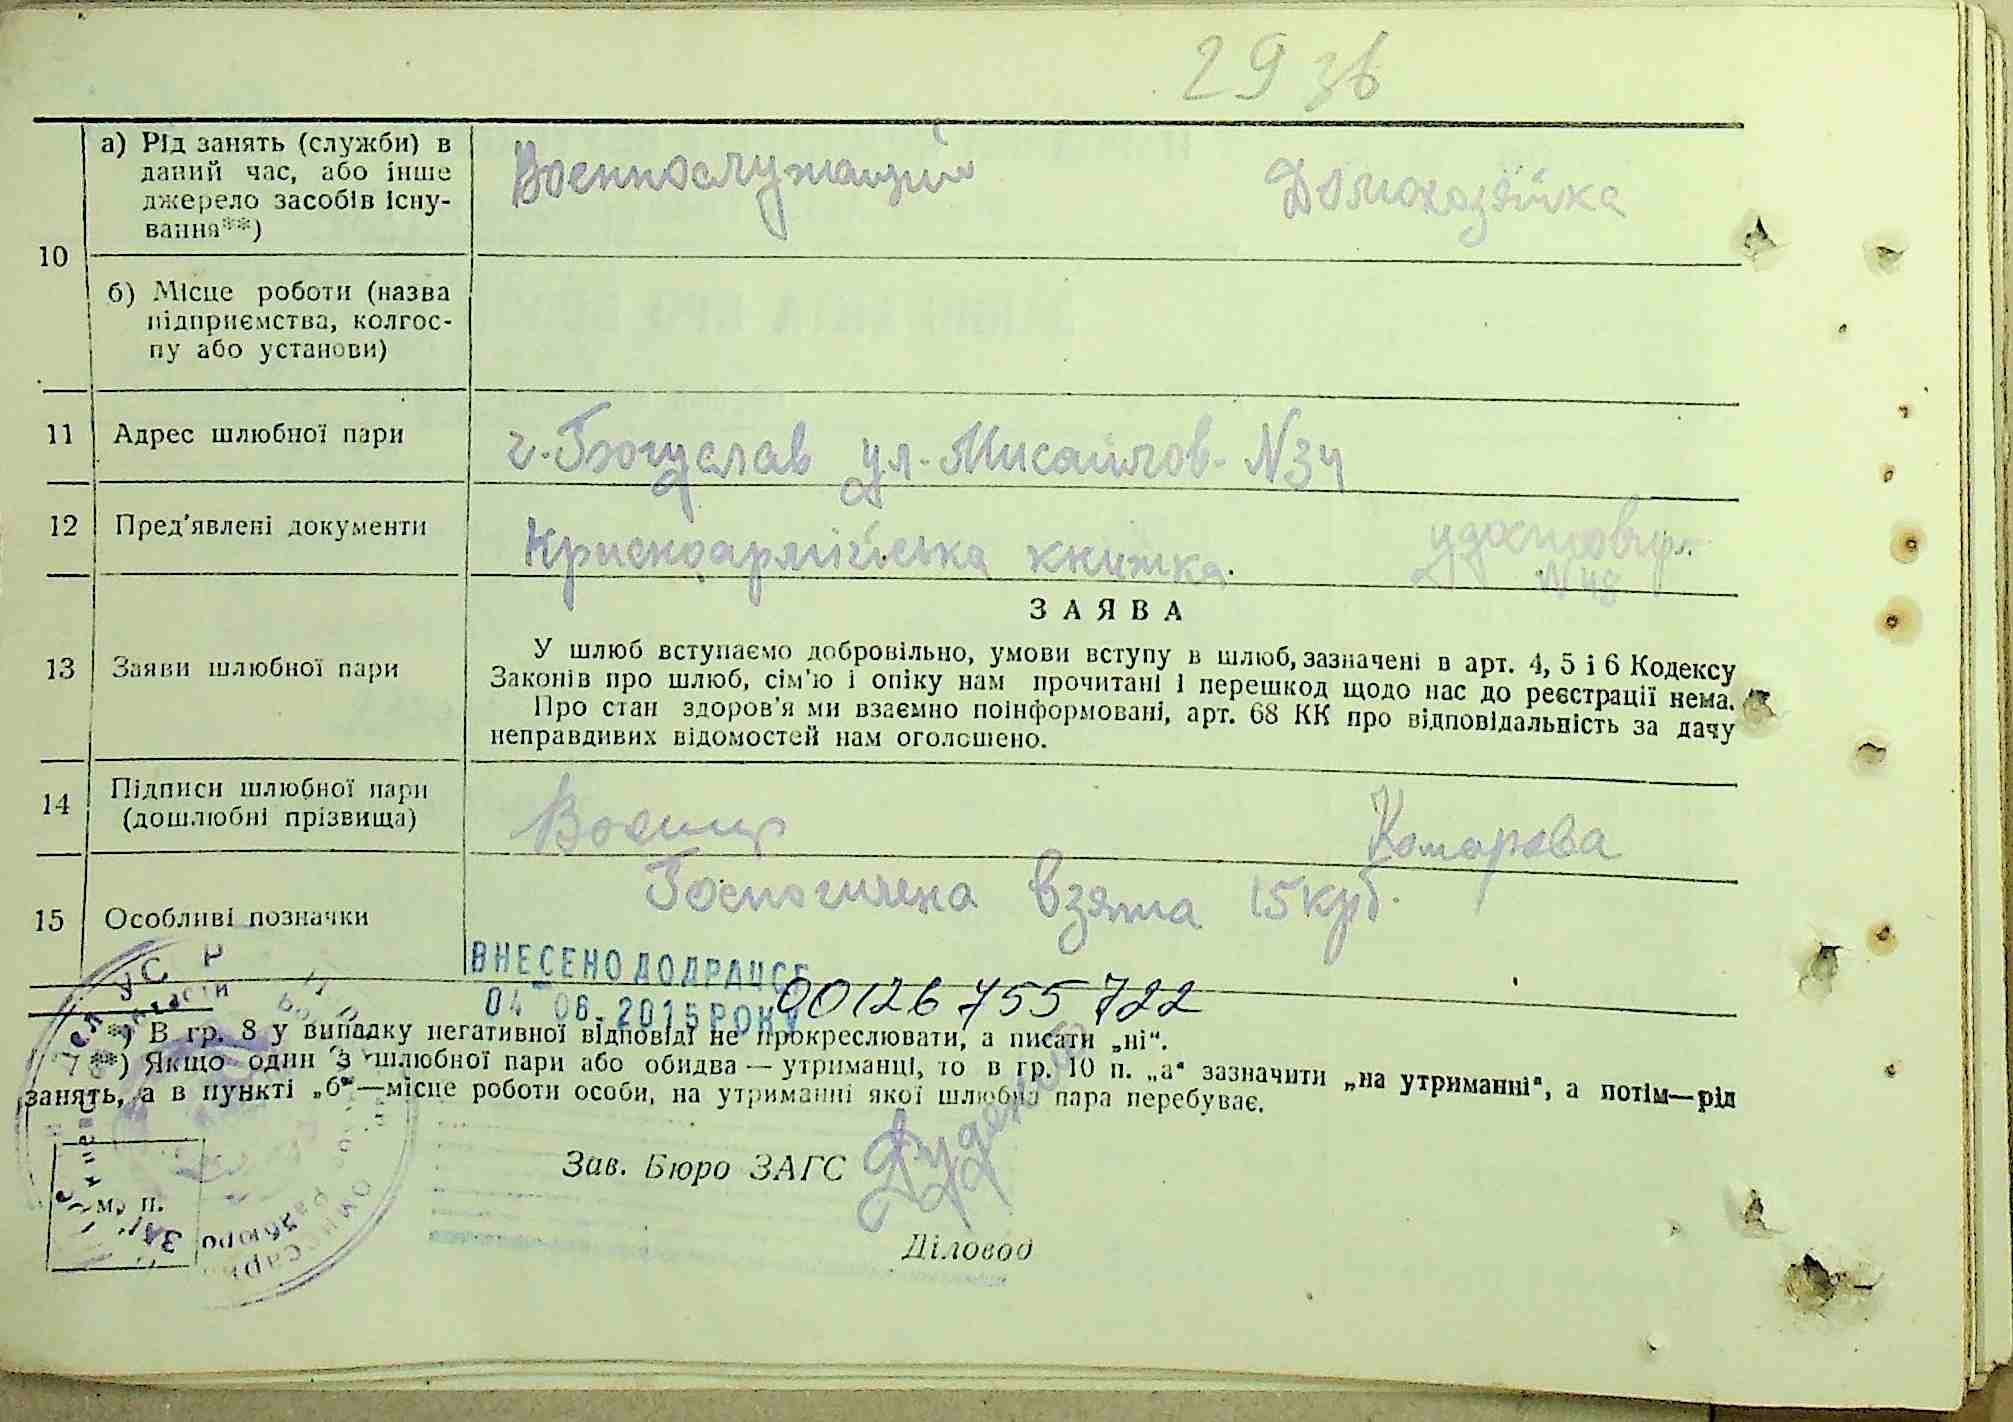 29 зв
10
а) Рід занять (служби) в
даний час, або інше
джерело засобів існу-
вання**)
Военнослужащий
Домохозяйка
б) Місце роботи (назва
підприємства, колгос-
пу або установи)
11
Адрес шлюбної пари
г. Богуслав ул. Мисайлов. N34
12
Пред'явлені документи
книжка.
удостовер.
N 48
13
Заяви шлюбної пари
ЗАЯВА
У шлюб вступаємо добровільно, умови вступу в шлюб, зазначені в арт. 4, 5 і 6 Кодексу
Законів про шлюб, сім'ю і опіку нам прочитані і перешкод щодо нас до реєстрації нема.
Про стан здоров'я ми взаємно поінформовані, арт. 68 КК про відповідальність за дачу
неправдивих відомостей нам оголошено.
14
Підписи шлюбної пари
(дошлюбні прізвища)
Комарова
15
Особливі позначки
взята 15 крб.
ВНЕСЕНО ДО ДРАЦСГ
04 06. 2015 РОКУ
00126755722
*) В гр. 8 у випадку негативної відповіді не прокреслювати, а писати „ні“.
**) Якщо один з шлюбної пари або обидва — утриманці, то в гр. 10 п. „а“ зазначити „на утриманні“, а потім—рід
занять, а в пункті „б“—місце роботи особи, на утриманні якої шлюбна пара перебуває.
Зав. Бюро ЗАГС
м. п.
Діловод